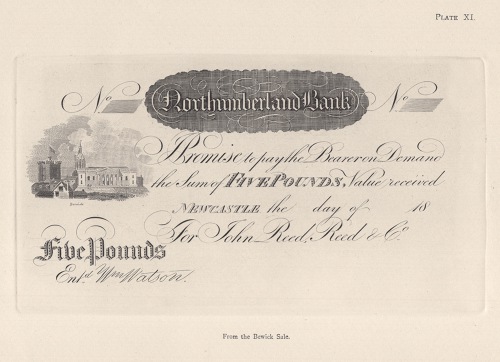 PLATE XI.
No Northumberland Bank No
I Promise to pay the Bearer on Demand
the Sum of FIVE POUNDS, Value received
NEWCASTLE the day of 18
For John Reed, Reed & Co.
Five Pounds
Ent.d Wm Watson.
From the Bewick Sale.